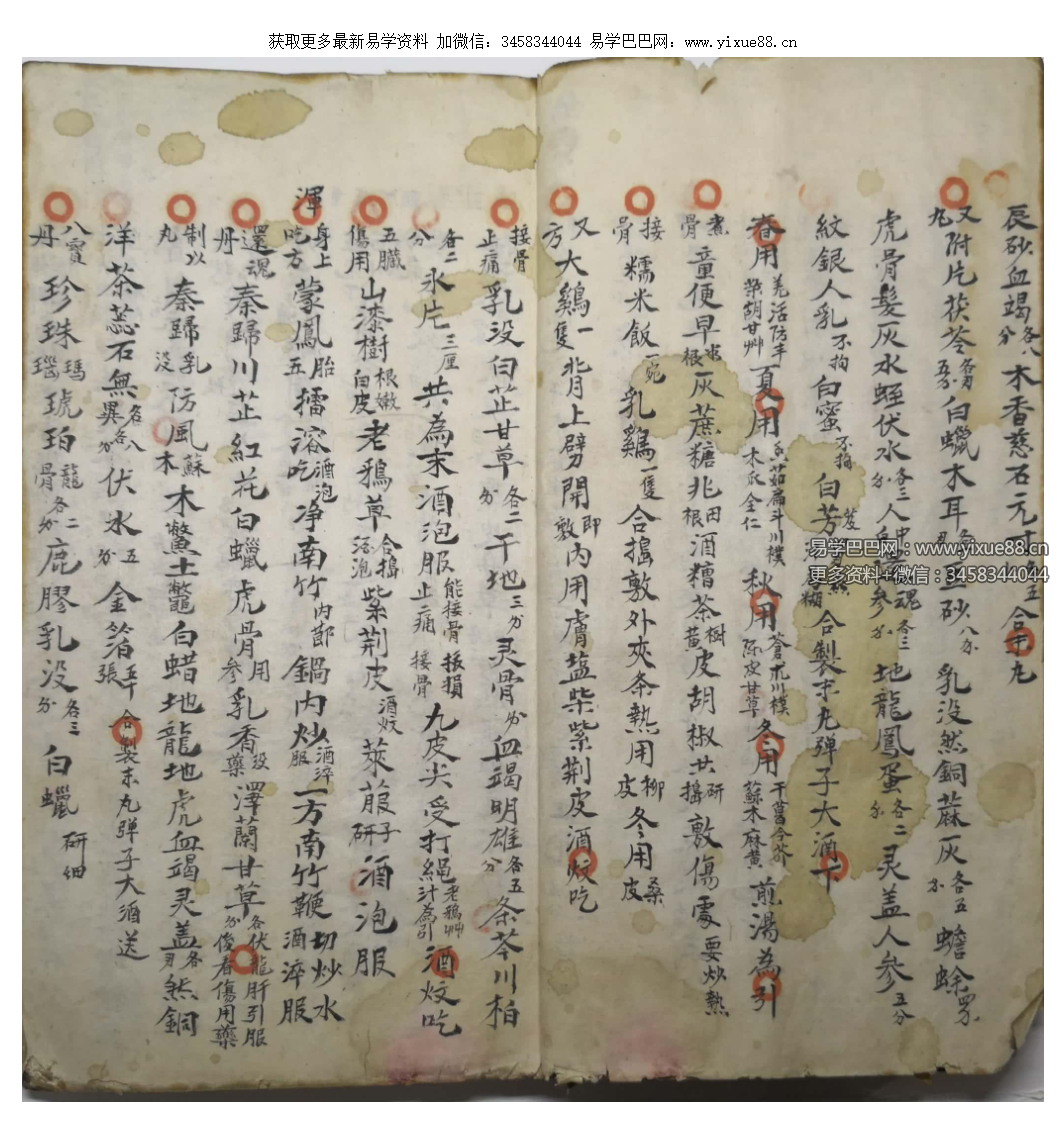 获取更多最新易学资料 加微信：3458344044 易学巴巴网：www.yixue88.cn
辰砂血竭各八分木香慈石元寸五合丸
又丸附片茯苓白蠟木耳砂八分乳没然銅蔴灰各五分蟾蜍
虎骨髮灰水蛭伏水各三分人中参分各三地龍鳳蛋各二分灵盖人参五分
紋銀人乳不拘白蜜不拘白芳合製末丸弹子大酒下
春用羌活防丰柴胡甘艸夏用秋用蒼朮川樸陈皮甘草冬用干葛今芥蘇木麻黄煎湯為引
煮骨童便早灰蔗糖兆田根酒糟茶樹黄皮胡椒共研搗敷傷處要炒熱
接骨糯米飯一碗乳鷄一隻合搗敷外夾条熱用柳皮冬用桑皮
又方大鷄一隻背上劈開即敷内用膚塩柴紫荆皮酒炆吃
接骨止痛乳没白芷甘草各二分干地三分灵骨分血竭明雄各五分条芩川柏
各二分氷片三厘共為末酒泡服能接骨止痛接骨九皮尖受打繩老鵝艸汁為引酒炆吃
五臟傷用山漆樹根嫩白皮老鴉草合搗酒泡紫荆皮酒炆萊菔子研酒泡服
渾身上吃方蒙鳳胎五擂溶酒泡吃净南竹内節鍋内炒酒淬服一方南竹鞭切炒水酒淬服
還魂丹秦歸川芷紅花白蠟虎骨用参乳香没藥澤蘭甘草各分伏龍肝引服後看傷用藥
制以丸秦歸乳没防風蘇木木鱉土鱉白蜡地龍地虎血竭灵盖各然銅
洋茶蕊石無異各八分伏水五分金箔五十張合製末丸弹子大酒送
八寶丹珍珠瑪瑙琥珀龍骨各二分鹿膠乳没各三分白蠟研细
易学巴巴网：www.yixue88.cn
更多资料+微信：3458344044